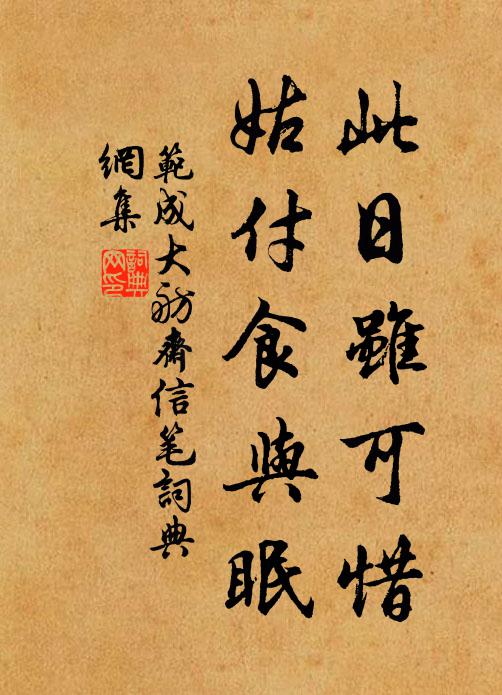 此日雖可惜
姑付食與眠
範成大舫齋信笔詞典
網集
詞典
网印